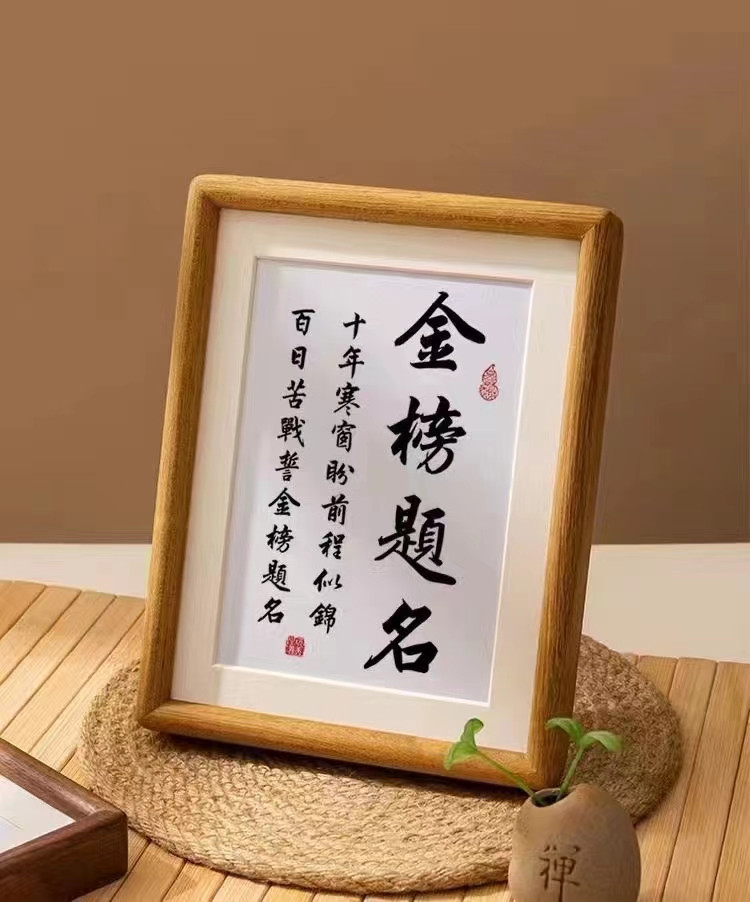 金榜題名
十年寒窗盼前程似錦
百日苦戰誓金榜題名
禅